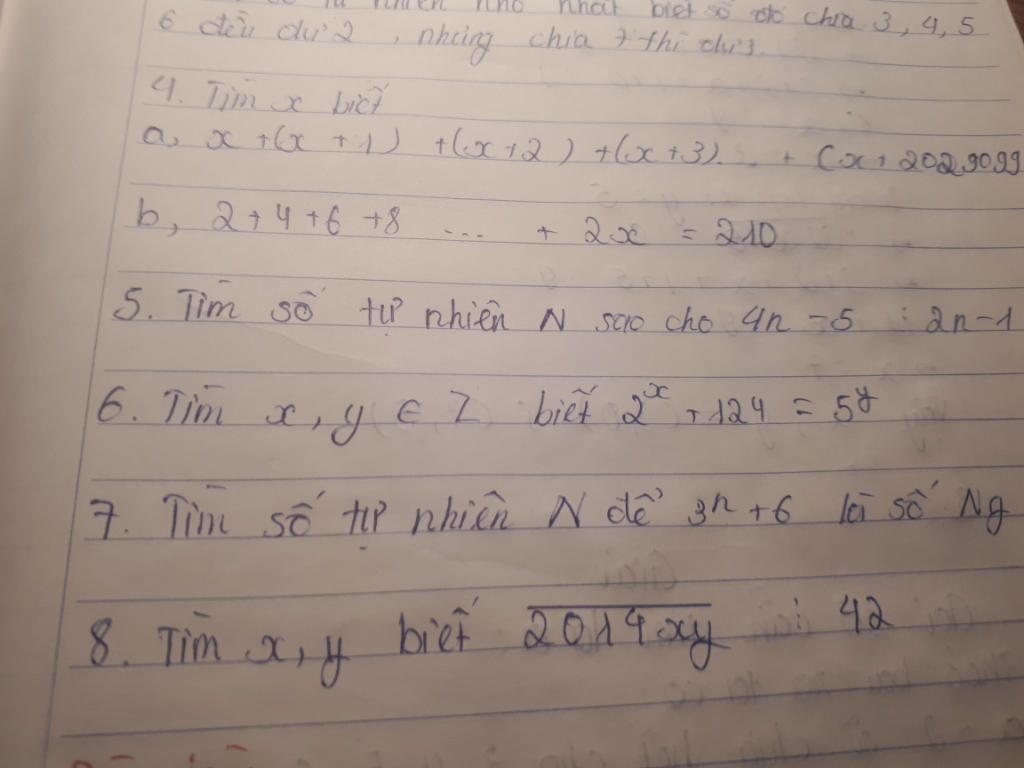 nhiên nhỏ nhất biết số đó chia 3, 4, 5
6 đều dư 2, nhưng chia 7 thì dư 3.
4. Tìm x biết
a, x + (x + 1) + (x + 2) + (x + 3) ... + (x +
b, 2 + 4 + 6 + 8 ... + 2x = 210
5. Tìm số tự nhiên N sao cho 4n - 5 ⋮ 2n - 1
6. Tìm x, y ∈ Z biết 2^x + 124 = 5^y
7. Tìm số tự nhiên N để 3^n + 6 là số Ng
8. Tìm x, y biết 2014xy ⋮ 42